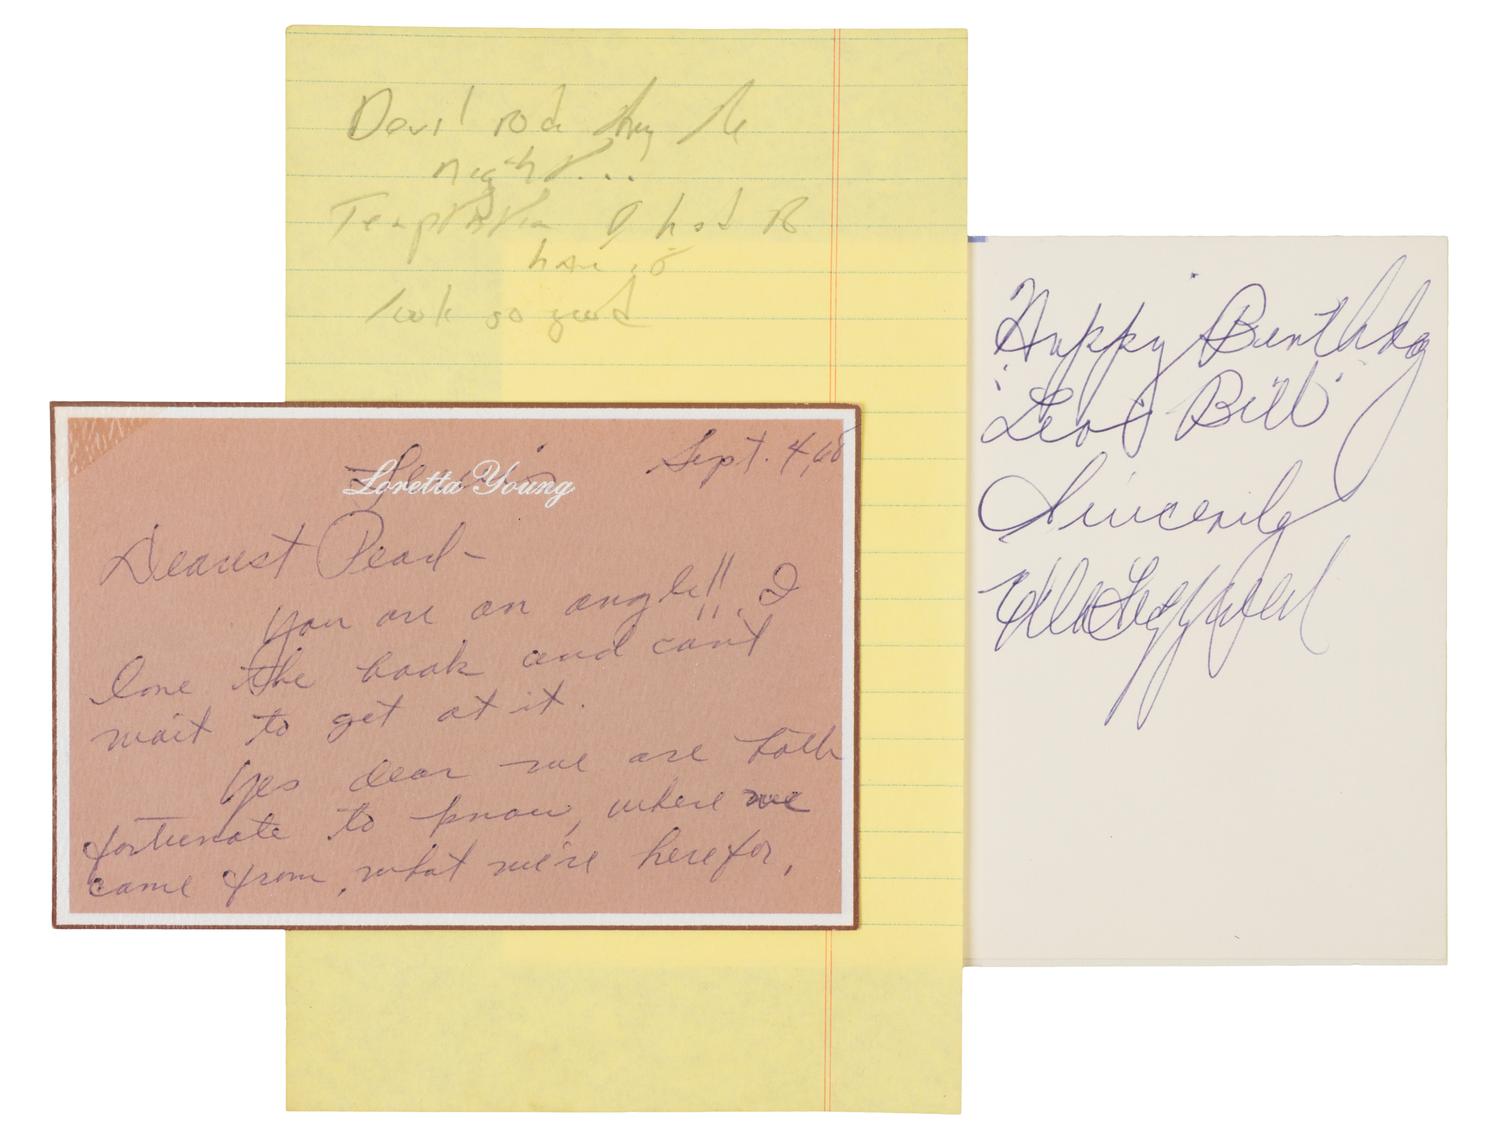 Devil rode thry the
night...
Temptation I had to
have it
look so good
Loretta Young
Sept. 4, 68
Dearest Pearl-
You are an angle!! I
love the book and can't
wait to get at it.
Yes dear we are both
fortunate to know, where we
came from, what we're here for,
Happy Birthday
"Leo & Bill"
Sincerely
Ella Fitzgerald